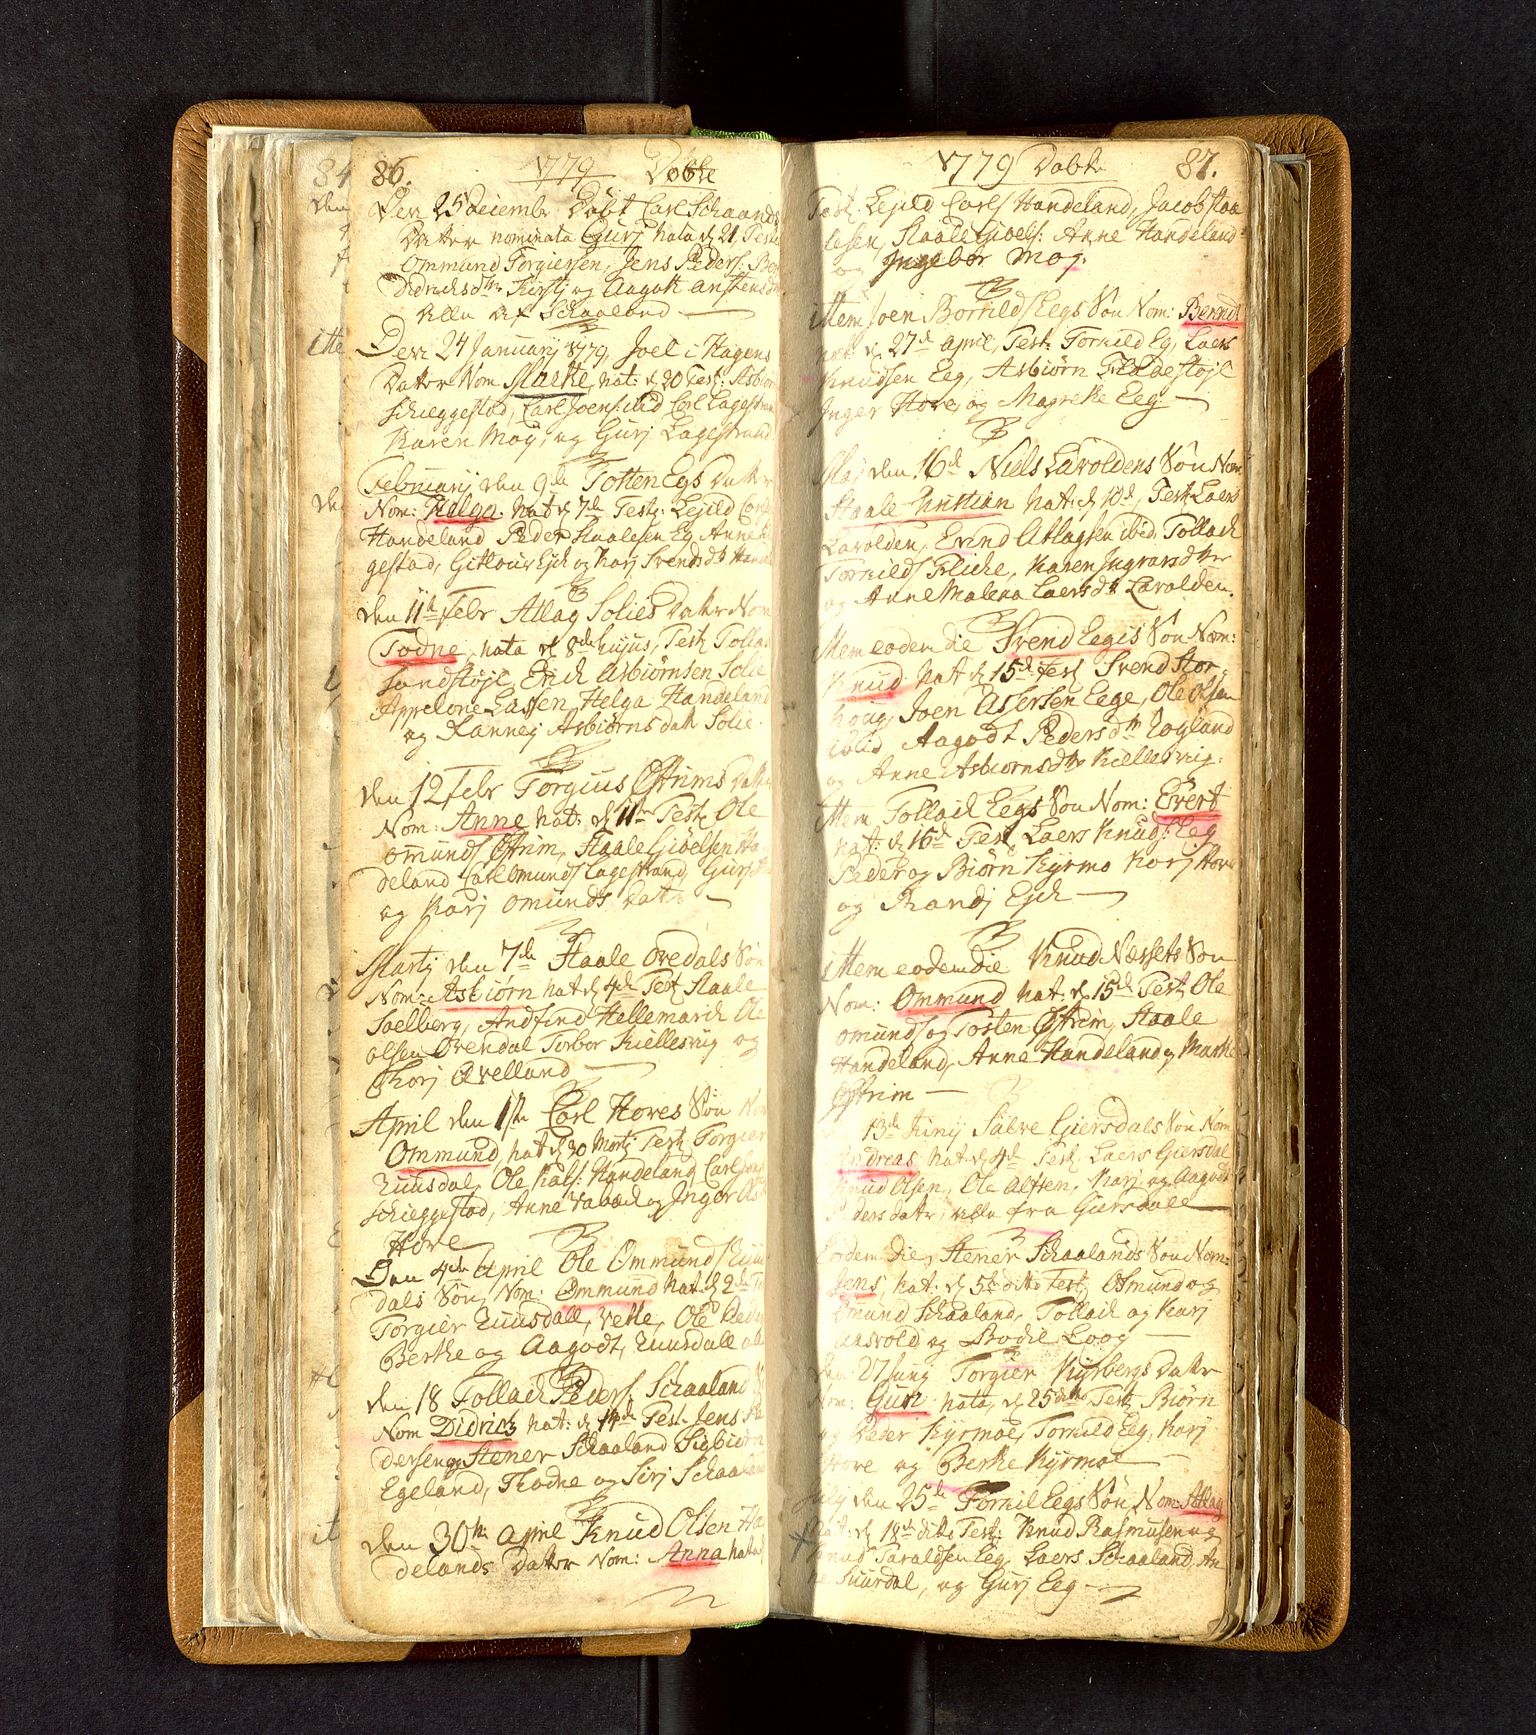 86. 1779 Døbte
Den 25 Decembr: Døbt Carl Schaands
Datter nominata Gurj nata d 21, Test
Ommund Torgiersen, Jens Peders:
Didrichsdtr Kirsti og Aagott
alle af Schaaland
Den 24 Januarij 1779, Joel i Hagens
Datter Nom Marthe, nat: d 20 Test: Asbiørn
Schieggestad, Carl Joens: ibid Carl Lagestrand
Karen Moy, og Gurj Lagestrand
Februarij den 9de Totten Egs Datter
Nom: Helga. Nat d 7de Test: Lejild Carls
Handeland Peder Staalesen Eg, Anne
gestad, Gitlou Ejch og Karj Svendsdtr
den 11te Febr Atlag Solies Datter Nom
Todne, nata d 8de hujus, Test Tollag
Sandstøjl, Erich Asbiørnsen Solie
Appelone Lassen, Helga Handeland
og Rannej Asbiørnsdatr Solie.
den 12 Febr Torgius Østrims Datter
Nom: Anne nat: d 11te Test Ole
omunds Østrim, Staale Giøelsen
deland Carl Omunds Lagestrand, Gurj
og Karj omunds Datr
Martj den 7de Staale Ovedals Søn
Nom: Asbiørn nat d 4de Test Staale
Soelberg, Andfind Hellemarch Ole
olsen Ovendal Torbor Kiellesvig og
Chorj Qvelland
April den 1te Carl Hoves Søn
Ommund, nat d 30 Martj Test Torgier
Ruusdal, Ole Kals: Handeland, Carl Joens
Schieggestad, Anne Vabæl og Inger
Hove
Den 4de April Ole Ommunds
dals Søn Nom: Ommund nat d 2de
Torgier Ruusdall, Vette, Ole
Berthe og Aagodt, Ruusdall
den 18 Tollach Peders: Schaaland
Nom Didrich nat: d 14de Test Jens
dersen, Stener Schaaland Sigbiørn
Egeland, Thodne og Sirj Schaaland
den 30te April Knud Olsen
delands Datter Nom: Anna nata
1779 Døbte 87.
Test. Lejild Carls Handeland, Jacob Staa
lesen, Staale Gioels: Anne Handeland
og Ingebor Moy.
item Joen Borrilds Eegs Søn Nom: Berndt
nat: d 27de April, Test Torkild Eg, Laers
Knudsen Eeg, Asbiørn
Inger Hove, og Magrethe Eeg
Maj den 16de Niels Lavoldens Søn Nom
Staale Christian nat: d 10de, Test Laers
Lavolden, Erind Atlagsen ibid, Tollach
Torkilds Fliche, Karen Ingvarsdtter
og Anne Malena Laersdtr Lavolden.
item eodem die Svend Eegis Søn Nom:
Knud nat d 15de Test Svend Stor
houg, Joen Asersen Eege, Ole Olsen
ibid, Aagodt Pedersdtr Rogland
og Anne Asbiornsdtr Kiellesvig.
item Tollach Eegs Søn Nom: Evert
nat: d 16de Test, Laers Knuds: Eeg
Peder og Biørn Kyrmo Karj Hove
og Randj Ejch
item eodem die Knud Næssets Søn
Nom: Ommund nat: d 15de Test Ole
omunds og Tosten Østrim, Staale
Handeland, Anne Handeland og Marthe
Østrim
13de Junij Salve Giersdals Søn Nom
Andreas, nat d 4de Test, Laers Giersdal
Knud Olsen, Ole Alfsen, Karj og Aagodt
Pedersdatr, alle fra Giersdale
Eodem Die, Stener Schaalands Søn Nom:
Jens, nat: d 5te dito Test, Osmund og
Omund Schaaland, Tollach og Karj
og Bodil Loog
den 27 Junj Torgier Kyrbergs Datter
Nom: Guri nata, d 25de Test Biørn
og Peder Kyrmoe, Torkild Eeg, Karj
Hove og Berthe Kyrmoe
Julij den 25de Torkil Eegs Søn, Nom: Atlag
Nat: d 18de dito Test: Knud Rasmusen og
Knud Taraldsen Eeg, Laers Schaaland, An
ne Suurdal, og Gurj Eeg